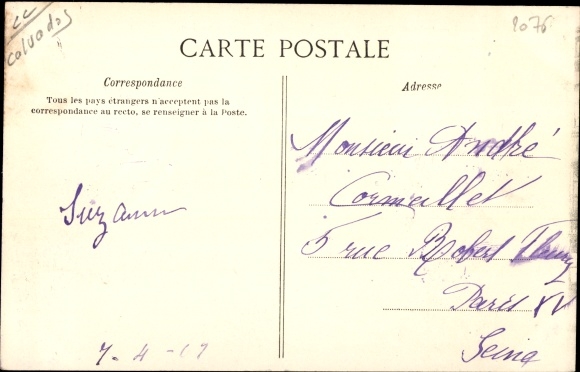 cc
calvados
2076
CARTE POSTALE
Correspondance
Tous les pays étrangers n'acceptent pas la
correspondance au recto, se renseigner à la Poste.
Suzanne
7-4-17
Adresse
Monsieur André
Cormeillet
5 rue Robert Fleury
Paris XV
Seine